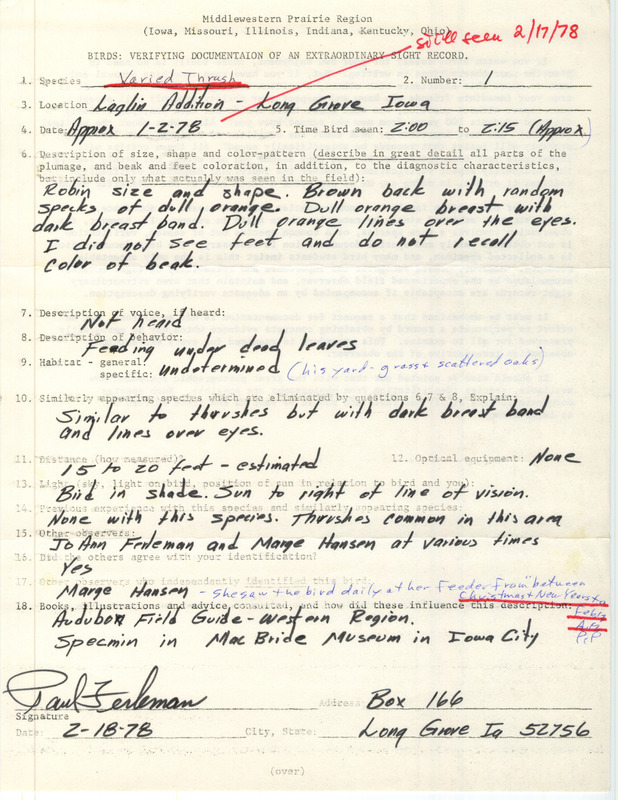 Middlewestern Prairie Region
(Iowa, Missouri, Illinois, Indiana, Kentucky, Ohio)
still seen 2/17/78
BIRDS: VERIFYING DOCUMENTAION OF AN EXTRAORDINARY SIGHT RECORD.
1. Species Varied Thrush 2. Number: 1
3. Location Laglin Addition - Long Grove Iowa
4. Date: Approx 1-2-78 5. Time Bird seen: 2:00 to 2:15 (Approx)
6. Description of size, shape and color-pattern (describe in great detail all parts of the
plumage, and beak and feet coloration, in addition, to the diagnostic characteristics,
but include only what actually was seen in the field):
Robin size and shape. Brown back with random
specks of dull orange. Dull orange breast with
dark breast band. Dull orange lines over the eyes.
I did not see feet and do not recall
color of beak.
7. Description of voice, if heard:
Not heard
8. Description of behavior:
Feeding under dead leaves
9. Habitat - general:
specific: undetermined (his yard - grass & scattered oaks)
10. Similarly appearing species which are eliminated by questions 6, 7 & 8, Explain:
Similar to thrushes but with dark breast band
and lines over eyes.
11. Distance (how measured)? 12. Optical equipment: None
15 to 20 feet - estimated
13. Light (sky, light on bird, position of sun in relation to bird and you):
Bird in shade. Sun to right of line of vision.
14. Previous experience with this species and similarly appearing species:
None with this species. Thrushes common in this area
15. Other observers:
JoAnn Ferleman and Marge Hansen at various times
16. Did the others agree with your identification?
Yes
17. Other observers who independently identified this bird:
Marge Hansen - she saw the bird daily at her Feeder From "between
Christmas & New Years &
18. Books, illustrations and advice consulted, and how did these influence this description:
Audubon Field Guide - Western Region.
Specmin in MacBride Museum in Iowa City
PCP
Paul Ferleman Address: Box 166
Signature
Date: 2-18-78 City, State: Long Grove Ia 52756
(over)